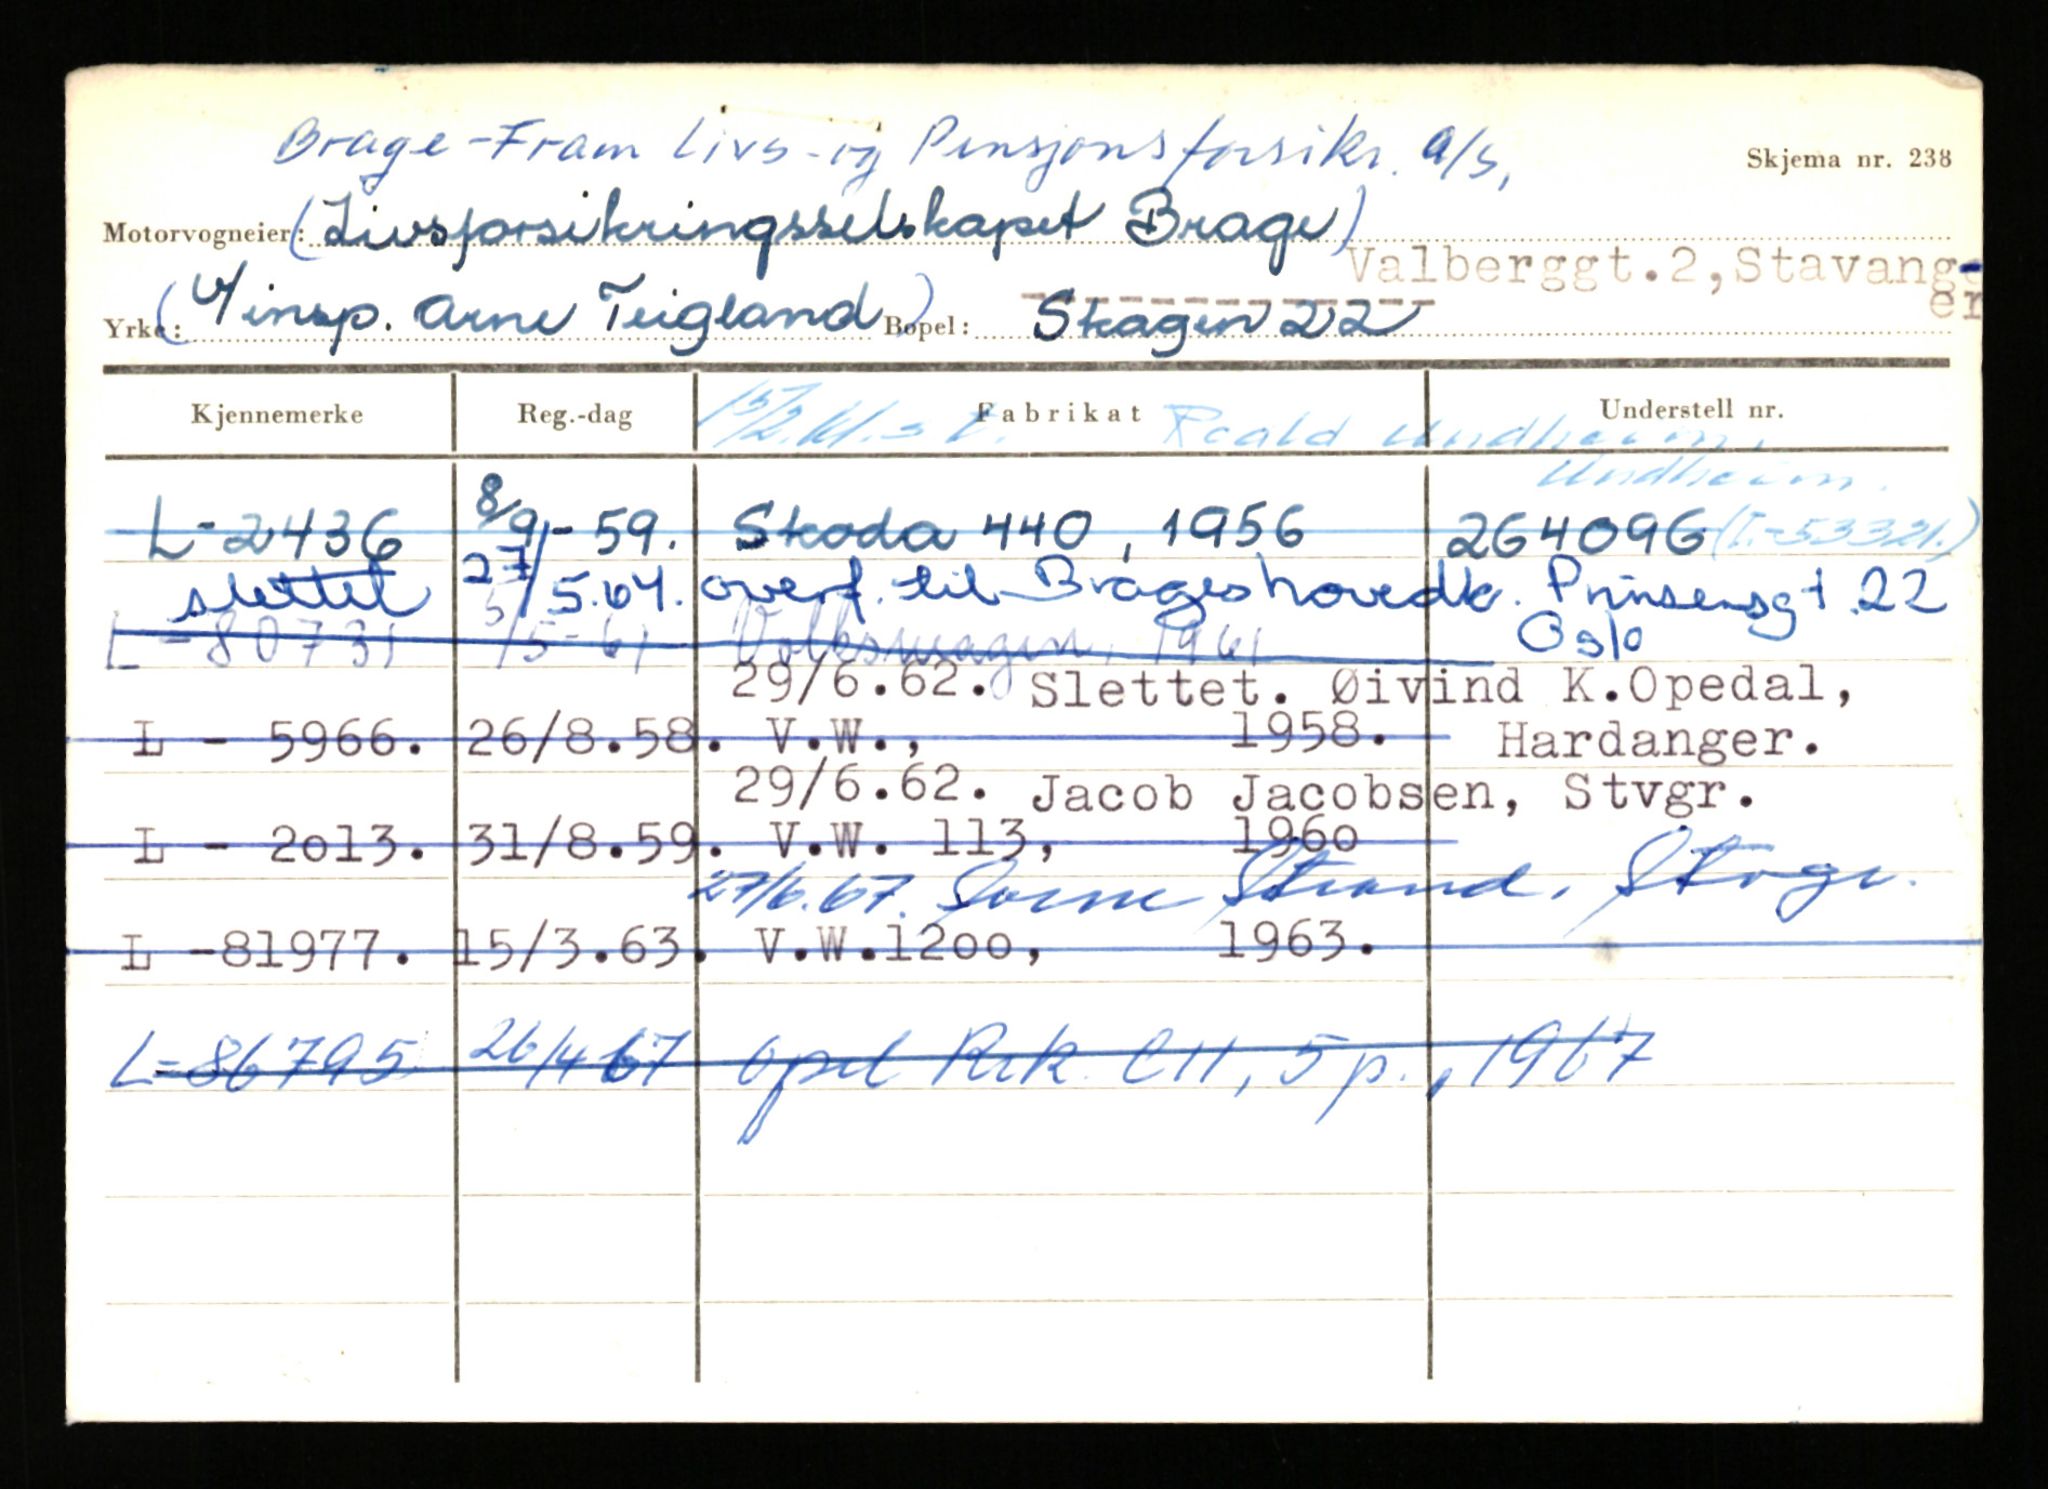 Brage-Fram Livs- og Pensjonsforsikr. a/s,
Skjema nr. 238
Motorvogneier: (Livsforsikringsselskapet Brage)
Valberggt.2,Stavang-
er
Yrke: (v/insp. Arne Teigland) Bopel: Skagen 22
Kjennemerke Reg.-dag Fabrikat Understell nr.
Roald Undheim,
Undheim.
L-2436 8/9-59. Skoda 440, 1956 264096 (L-53321.)
slettet 27/5.64. overf. til Brages hovedk. Prinsensgt. 22
Oslo
L-80731 /5-61 Volkswagen, 1961
29/6.62. Slettet. Øivind K.Opedal,
L - 5966. 26/8.58. V.W., 1958. Hardanger.
29/6.62. Jacob Jacobsen, Stvgr.
L - 2o13. 31/8.59. V.W. 113, 196o
27/6.67. Strand, Stvgr.
L -81977. 15/3.63. V.W.12oo, 1963.
L-86795 26/4 67 Opel Rek. C11, 5 p., 1967